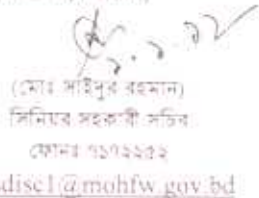 (মোঃ সাইদুর রহমান)
সিনিয়র সহকারী সচিব
ফোনঃ ৭১৭২২৫২
disc1@mohfw.gov.bd